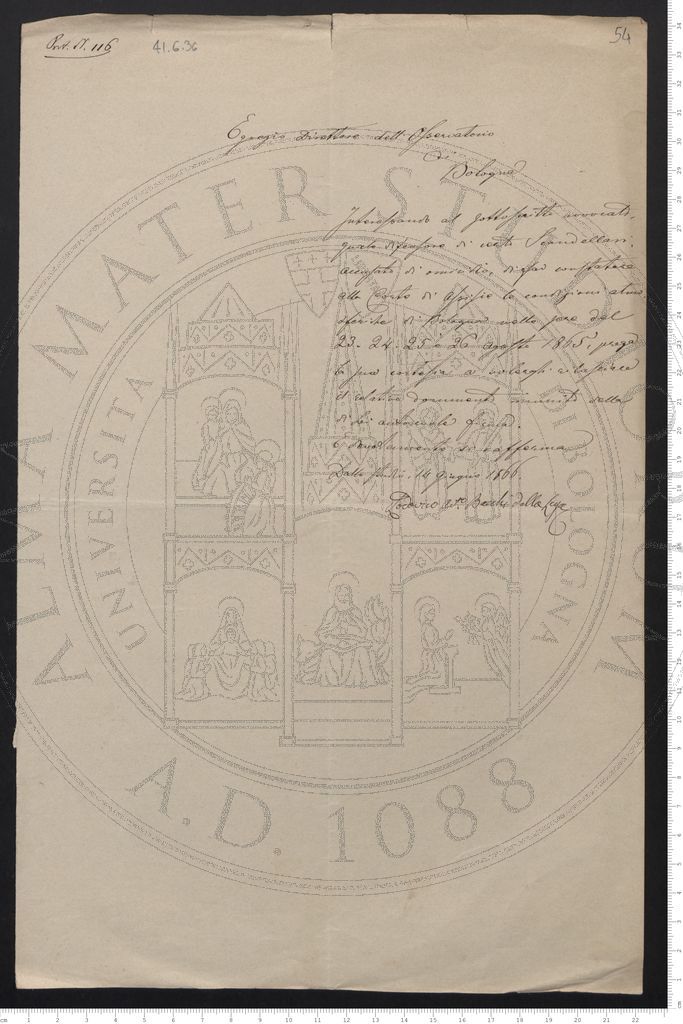 Prot. N. 116
41.6.36
54
Egregio Direttore dell'Osservatorio
di
Bologna
Interessando al sottoscritto avvocato,
quale difensore di certi Scandellari,
accusati di omicidio, di far constatare
alla Corte di Assisie le condizioni atmo
sferiche di Bologna nelle sere del
23. 24. 25 e 26 agosto 1865, prega
la sua cortesia a volergli rilasciare
il relativo documento munito della
di Lei autorevole firma.
E si rafferma
Dallo studio, 14 giugno 1866.
Lodovico Avv.
ALMA MATER STUDIORUM
UNIVERSITA DI BOLOGNA
A.D. 1088